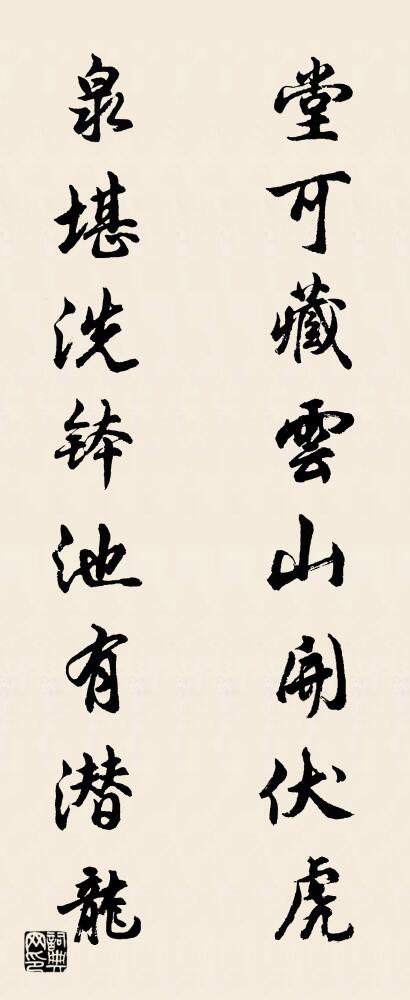 堂可藏雲山開伏虎
泉堪洗钵池有潜龍
詞典網印